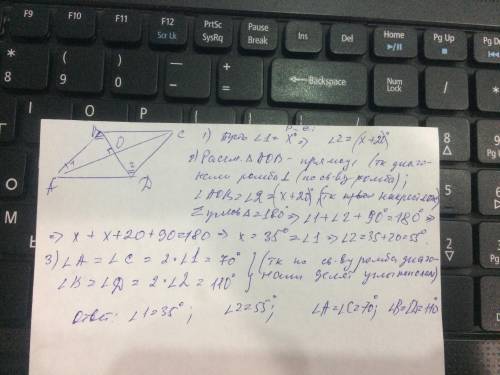 F9
F10
F11
F12
Scr Lk
PrtSc
SysRq
Pause
Break
Ins
Del
Home
Pg Up
Pg Dn
* 8
( 9
) 0
— -
+ =
Backspace
Num Lock
/
Г
О
Р
B
C
O
A
D
1
2
1) Пусть ∠1 = x° ⇒ ∠2 = (x+20)°
2) Рассм. △AOD - прямоуг. (тк диаго-
нали ромба ⊥ (по св-ву ромба);
∠2 = (x+20)°
Σ углов △ = 180° ⇒ ∠1 + ∠2 + 90° = 180° ⇒
⇒ x + x + 20 + 90 = 180 ⇒ x = 35° = ∠1 ⇒ ∠2 = 35 + 20 = 55°.
3) ∠A = ∠C = 2·∠1 = 70° } (тк по св-ву ромба, диаго-
∠B = ∠D = 2·∠2 = 110° } нали делят углы пополам)
Ответ: ∠1 = 35°; ∠2 = 55°; ∠A = ∠C = 70°; ∠B = ∠D = 110°